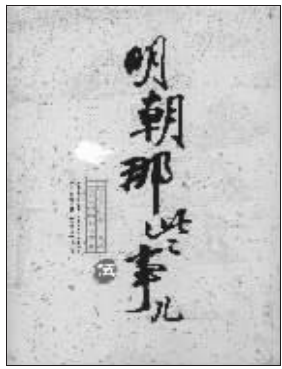 明朝那些事儿
伍